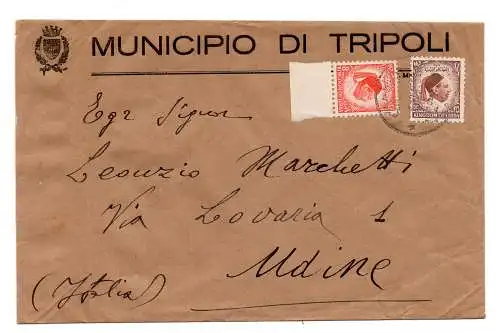 MUNICIPIO DI TRIPOLI
KINGDOM OF LIBYA
Egr Signor
Leonzio Marchetti
Via Lovaria 1
Udine
(Italia)